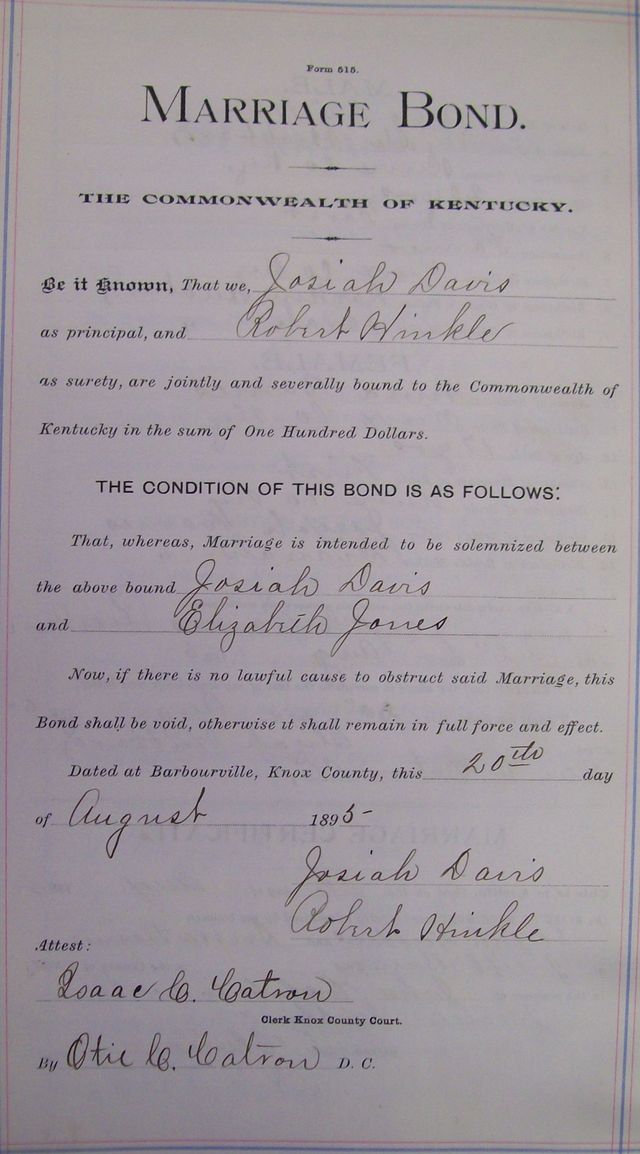 Form 615.
MARRIAGE BOND.
THE COMMONWEALTH OF KENTUCKY.
Be it Known, That we, Josiah Davis
as principal, and Robert Hinkle
as surety, are jointly and severally bound to the Commonwealth of
Kentucky in the sum of One Hundred Dollars.
THE CONDITION OF THIS BOND IS AS FOLLOWS:
That, whereas, Marriage is intended to be solemnized between
the above bound Josiah Davis
and Elizabeth Jones
Now, if there is no lawful cause to obstruct said Marriage, this
Bond shall be void, otherwise it shall remain in full force and effect.
Dated at Barbourville, Knox County, this 20th day
of August 1895
Josiah Davis
Robert Hinkle
Attest:
Isaac C. Catron
Clerk Knox County Court.
By Otie C. Catron D. C.